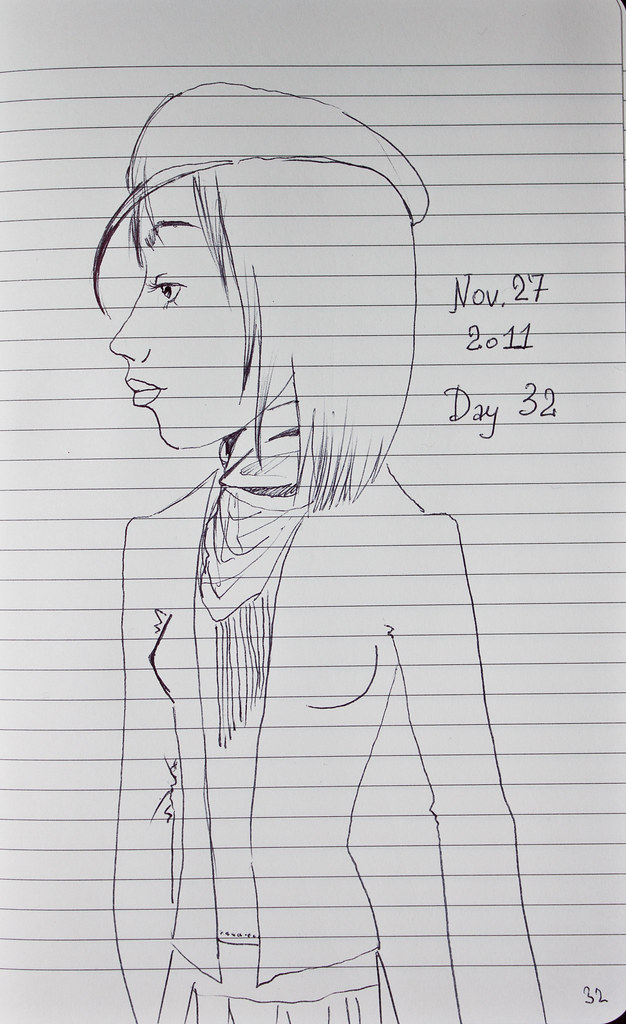 Nov. 27
2011
Day 32
32